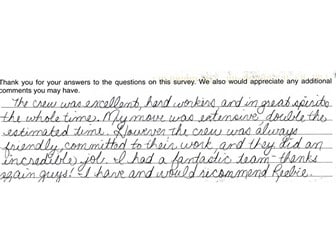 Thank you for your answers to the questions on this survey. We also would appreciate any additional
comments you may have.
The crew was excellent, hard workers, and in great spirits
the whole time. My move was extensive, double the
estimated time. However the crew was always
friendly, committed to their work, and they did an
incredible job. I had a fantastic team - thanks
again guys! I have and would recommend Reebie.